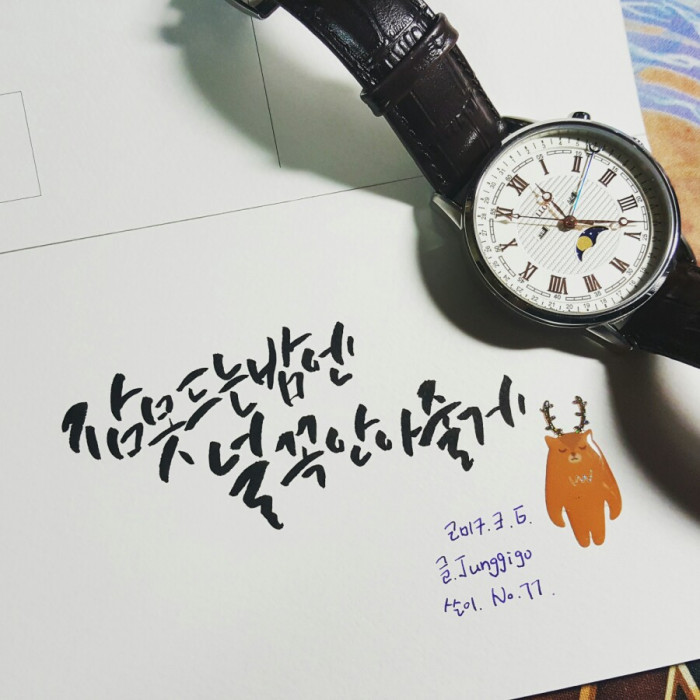 잠 못 드는 밤엔
널 꼭 안아줄게
2017.3.6.
글.Junggigo
쓸이. No.77.